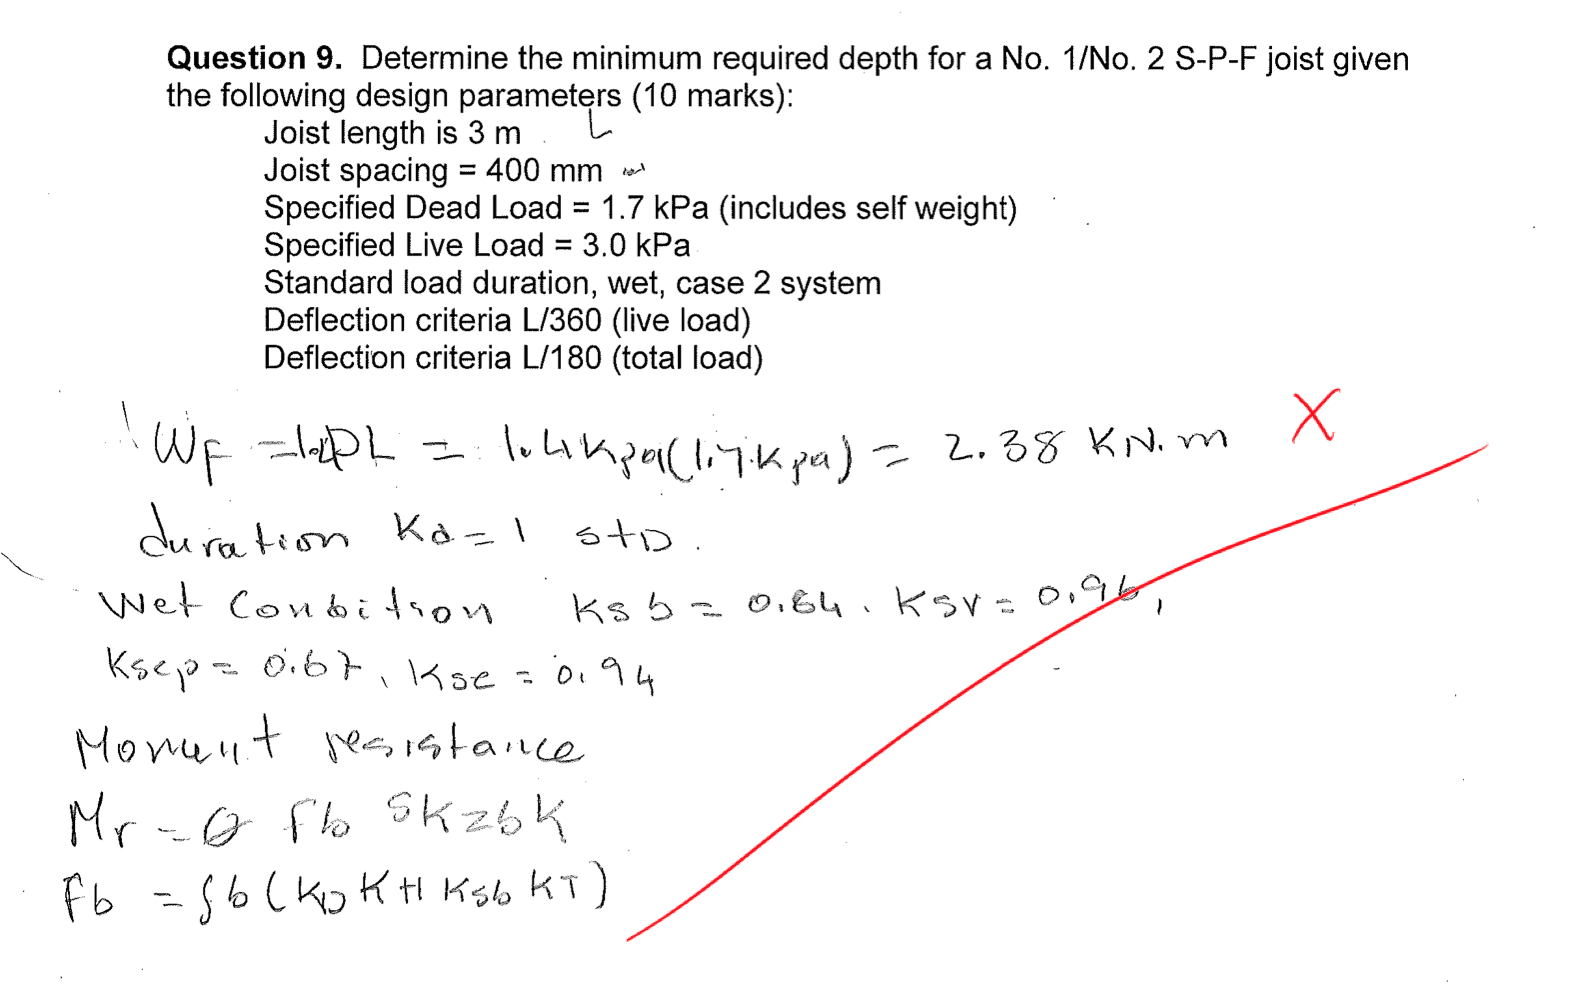 Question 9. Determine the minimum required depth for a No. 1/No. 2 S-P-F joist given
the following design parameters (10 marks):
Joist length is 3 m
Joist spacing = 400 mm
Specified Dead Load = 1.7 kPa (includes self weight)
Specified Live Load = 3.0 kPa
Standard load duration, wet, case 2 system
Deflection criteria L/360 (live load)
Deflection criteria L/180 (total load)
WF = 1.4DL = 1.4Kpa(1.7Kpa) = 2.38 KN.m X
duration Kd = 1 STD.
Wet Condition Ksb = 0.84. Ksv = 0.96,
Kscp = 0.67, Kse = 0.94
Moment resistance
Mr = Ø Fb SKzbK
Fb = fb (KD KH Ksb KT)